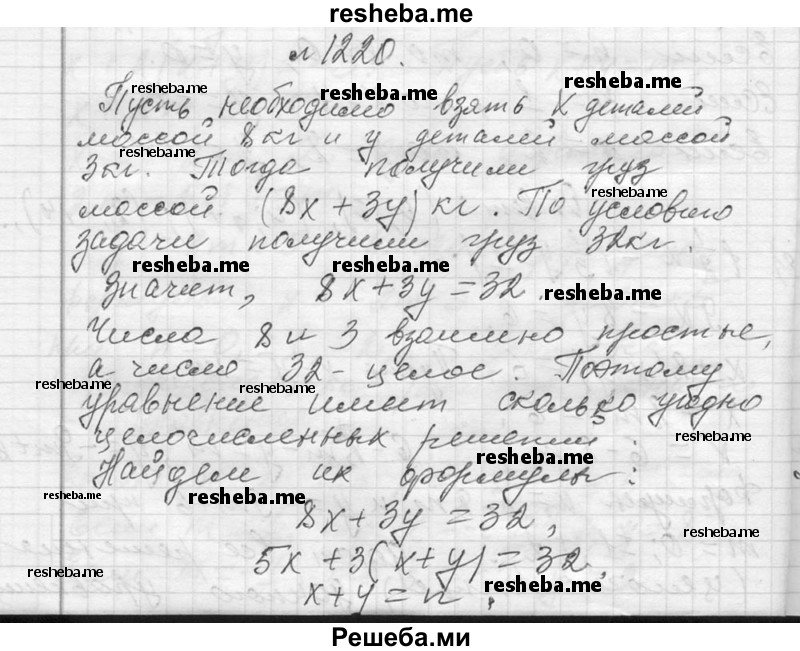 resheba.me
№1220.
resheba.me resheba.me resheba.me
Пусть необходимо взять x деталей
массой 8кг и y деталей массой
resheba.me
3кг. Тогда получили груз
resheba.me
массой (8x + 3y) кг. По условию
задачи получили груз 32кг.
resheba.me resheba.me
Значит, 8x + 3y = 32.
resheba.me
Числа 8 и 3 взаимно простые,
а число 32 - целое. Поэтому
resheba.me resheba.me
уравнение имеет сколько угодно
целочисленных решений.
resheba.me
resheba.me
Найдем их формулы:
resheba.me resheba.me
8x + 3y = 32,
resheba.me
5x + 3(x+y) = 32,
resheba.me resheba.me
x + y = n,
Решеба.ми